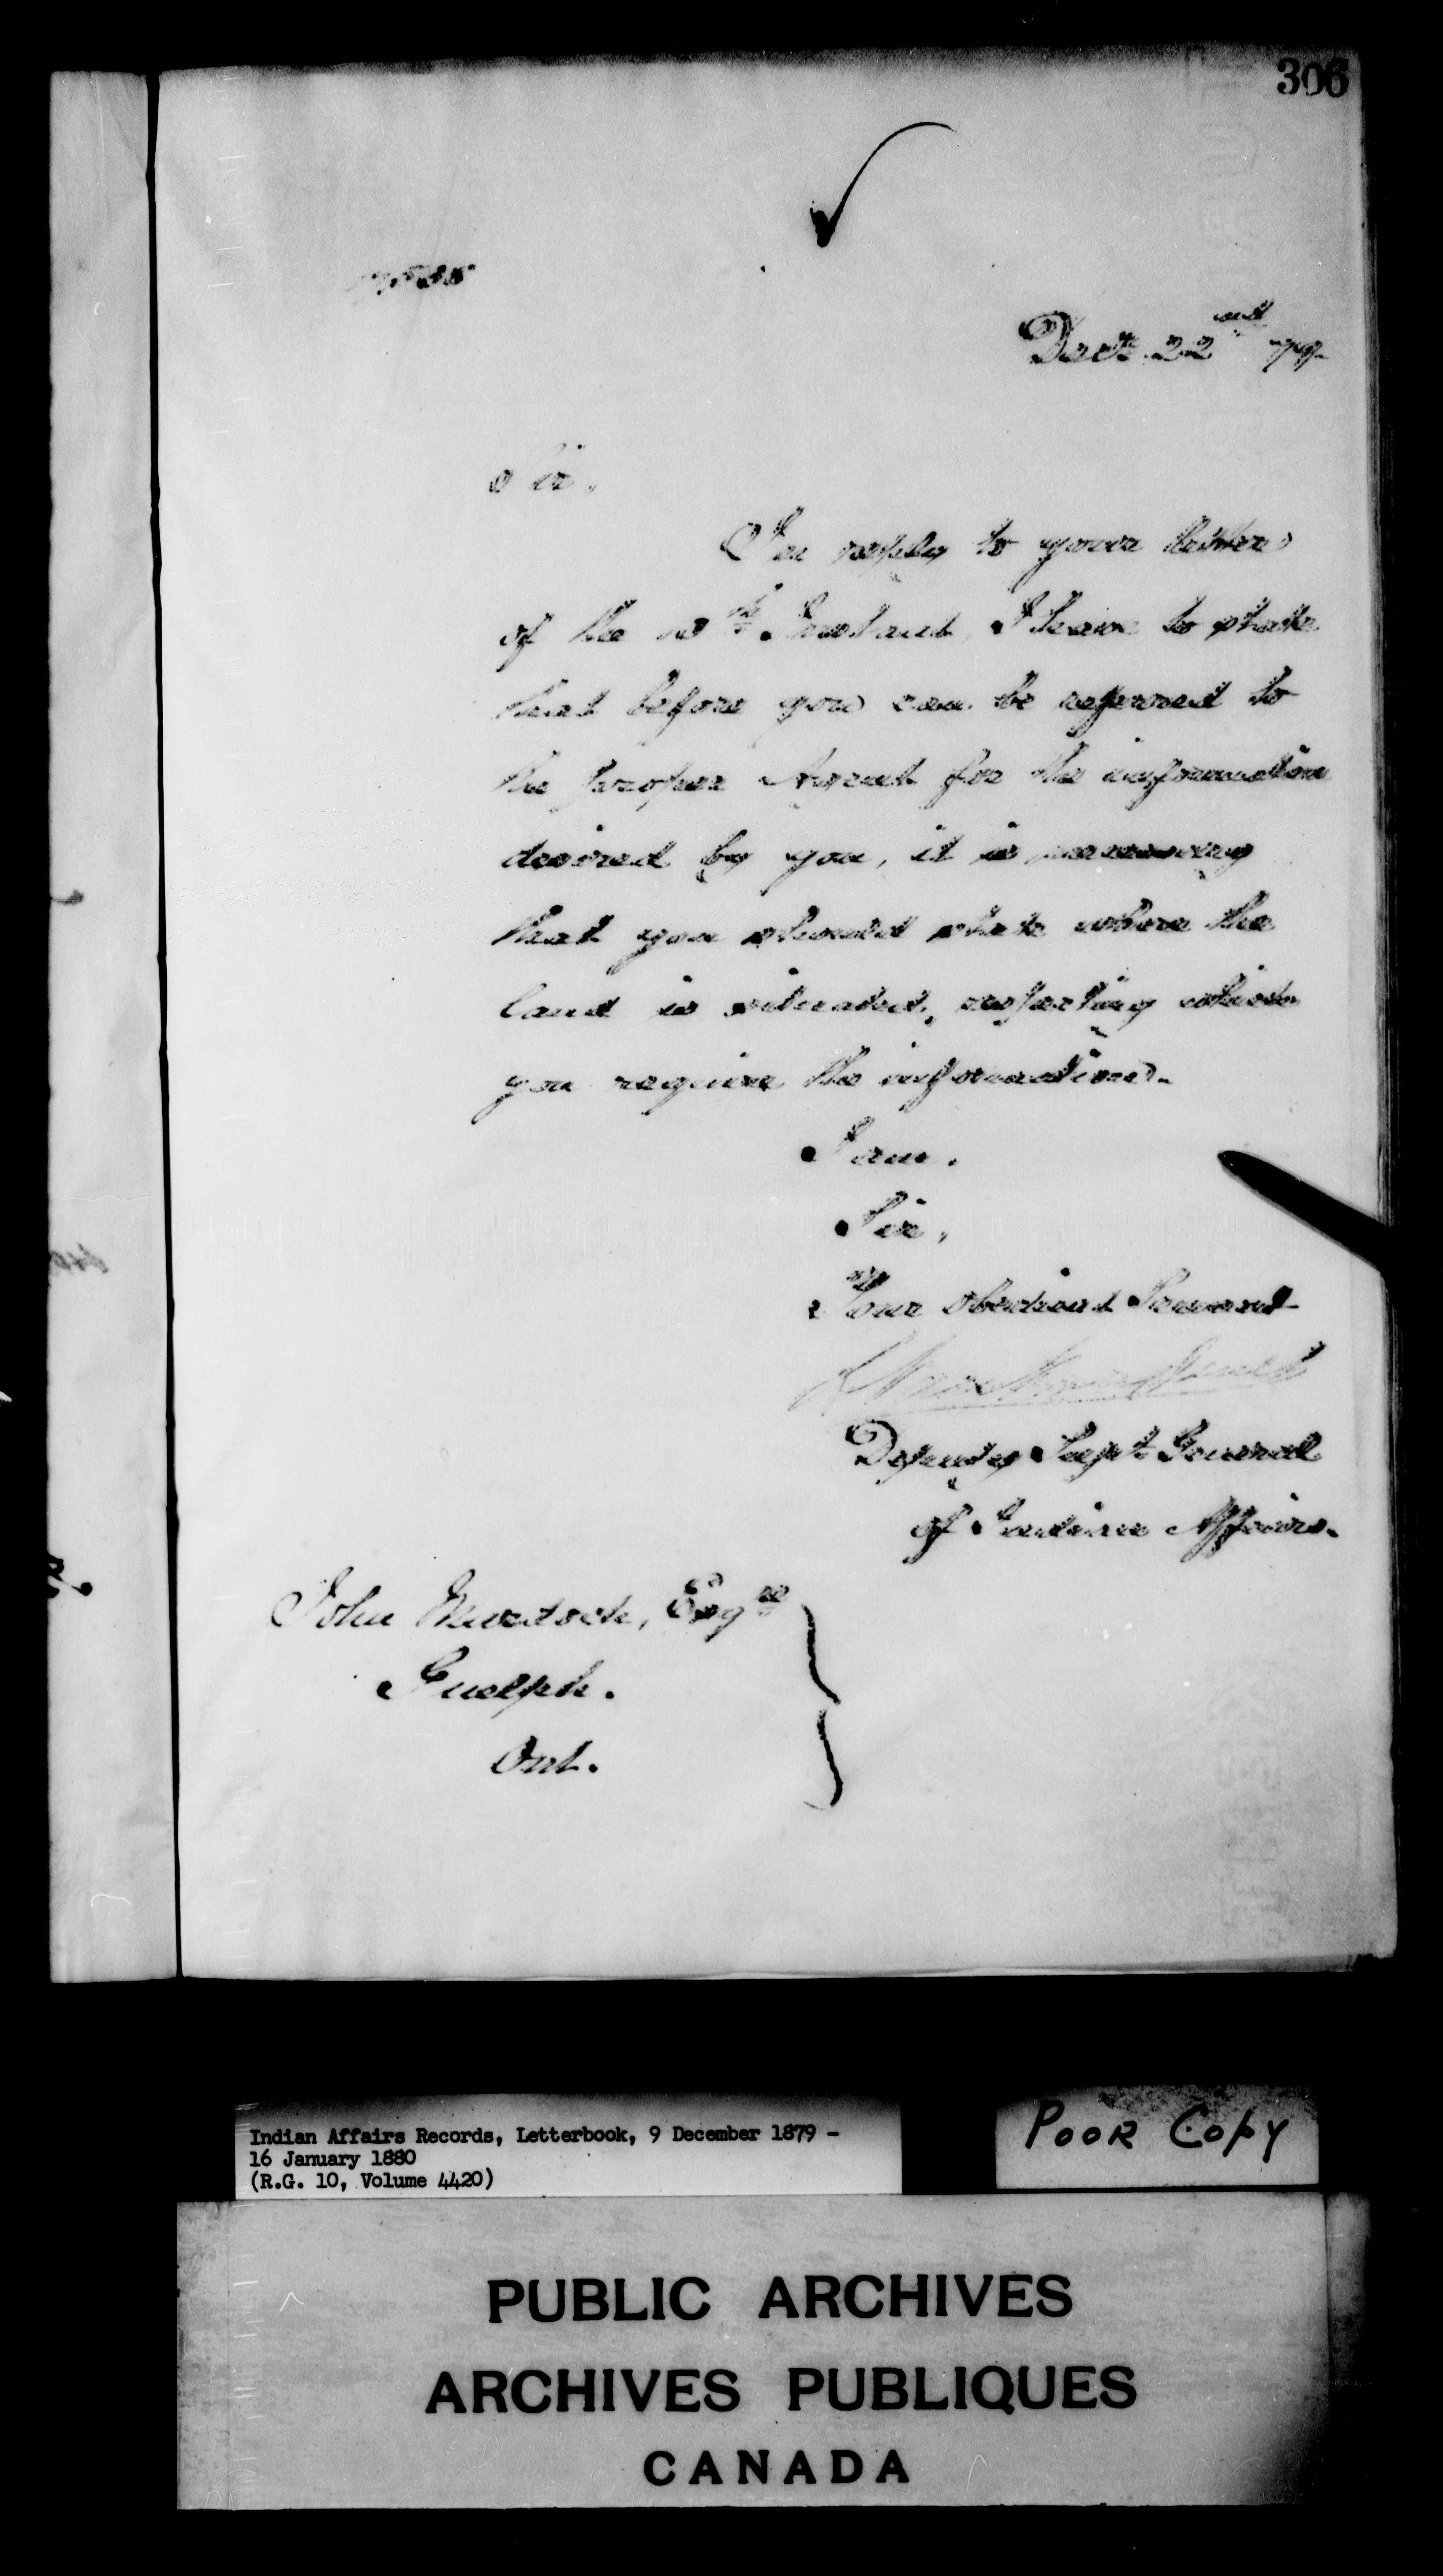 306
Dec 22nd 79
Sir,
In reply to your letter
of the Instant, I have to state
that before you can be referred to
the proper Agent for the information
desired by you, it is necessary
that you should state where the
land is situated, respecting which
you require the information.
I am.
Sir,
Your obedient Servant
Deputy Supt General
of Indian Affairs.
John Murdoch, Esqre
Guelph.
Ont.
Indian Affairs Records, Letterbook, 9 December 1879 -
16 January 1880
(R.G. 10, Volume 4420)
POOR COPY
PUBLIC ARCHIVES
ARCHIVES PUBLIQUES
CANADA